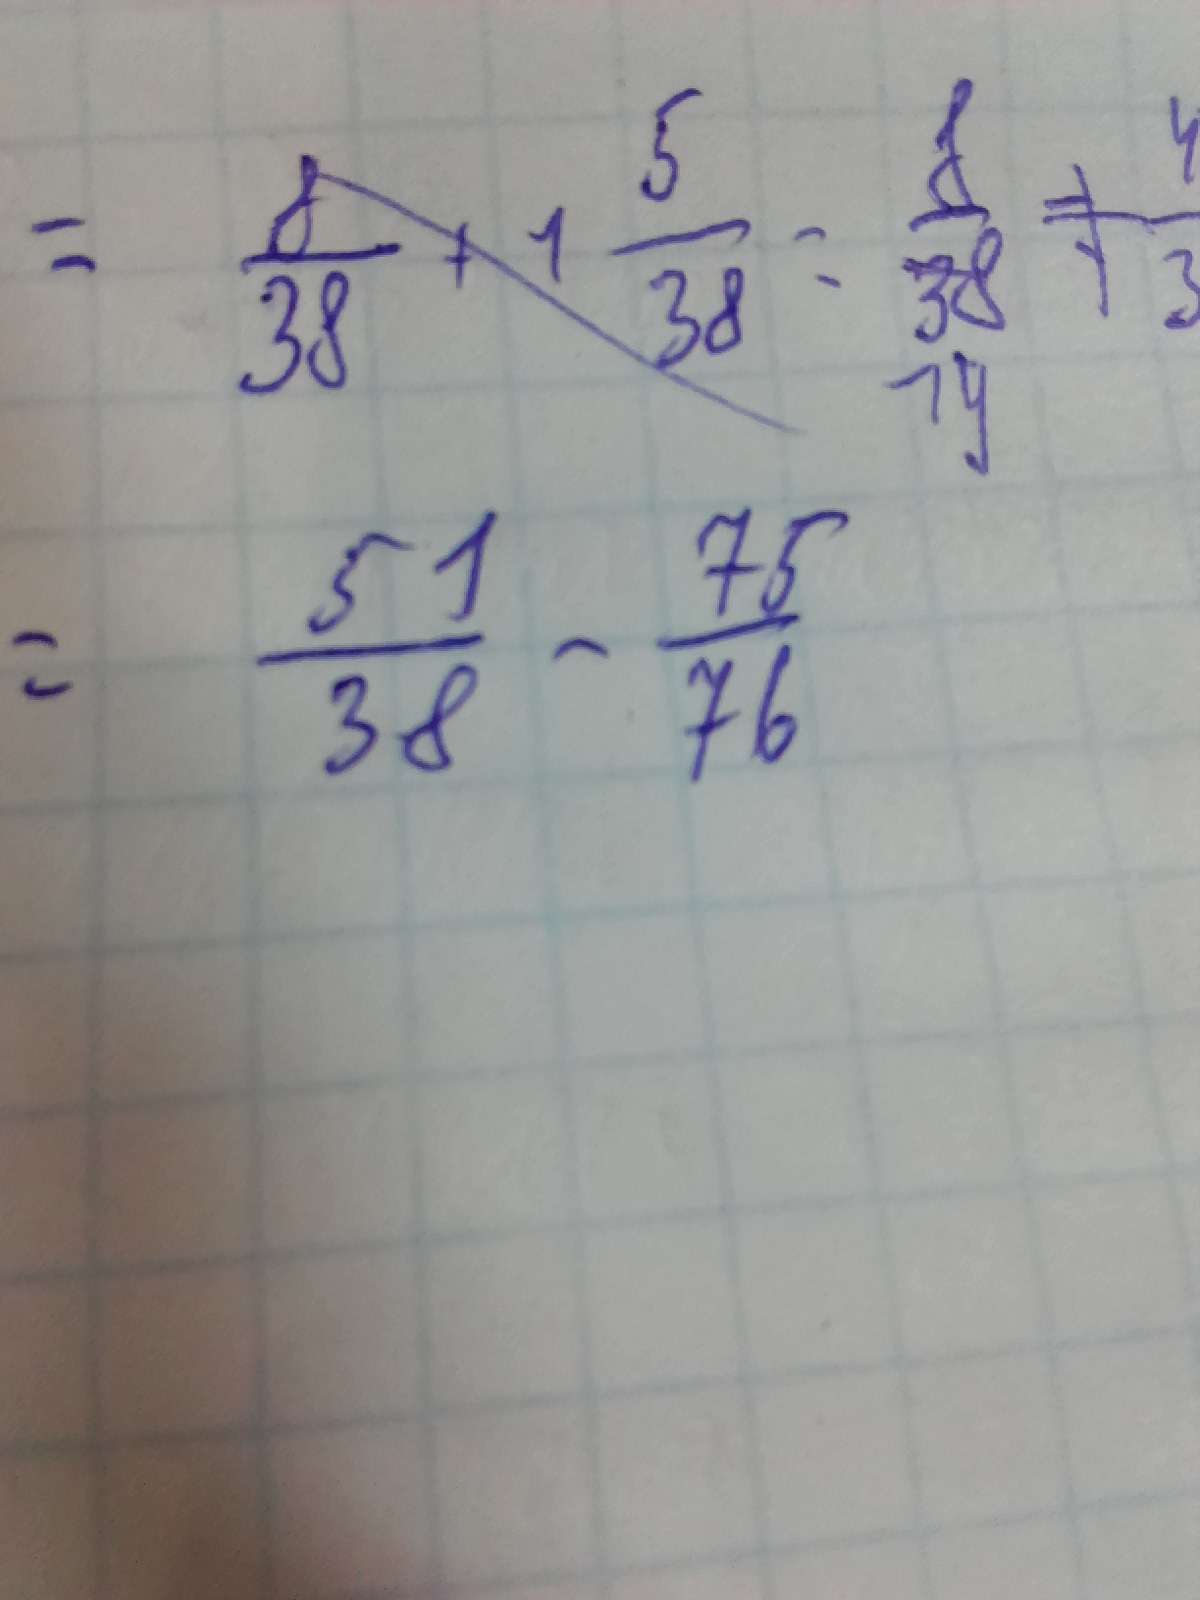 = 8/38 + 1 5/38 = 8/38 = 4/3
19
= 51/38 - 75/76